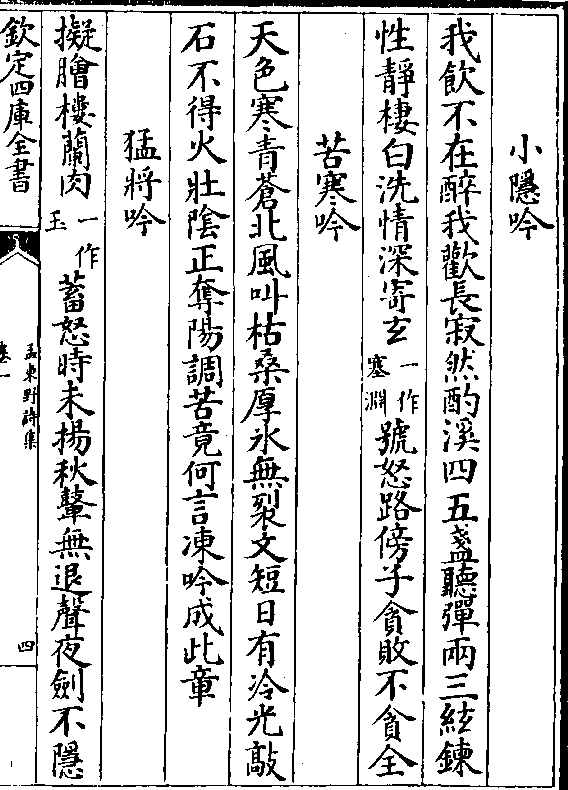 小隱吟
我飲不在醉我歡長寂然酌溪四五盞聽彈兩三絃鍊
性靜棲白洗情深寄玄一作塞淵號怒路傍子貪敗不貪全
苦寒吟
天色寒青蒼北風叫枯桑厚氷無裂文短日有冷光敲
石不得火壯陰正奪陽調苦竟何言凍吟成此章
猛將吟
擬膾樓蘭肉一作玉蓄怒時未揚秋鼙無退聲夜劍不隱
欽定四庫全書
孟東野詩集
卷一
四